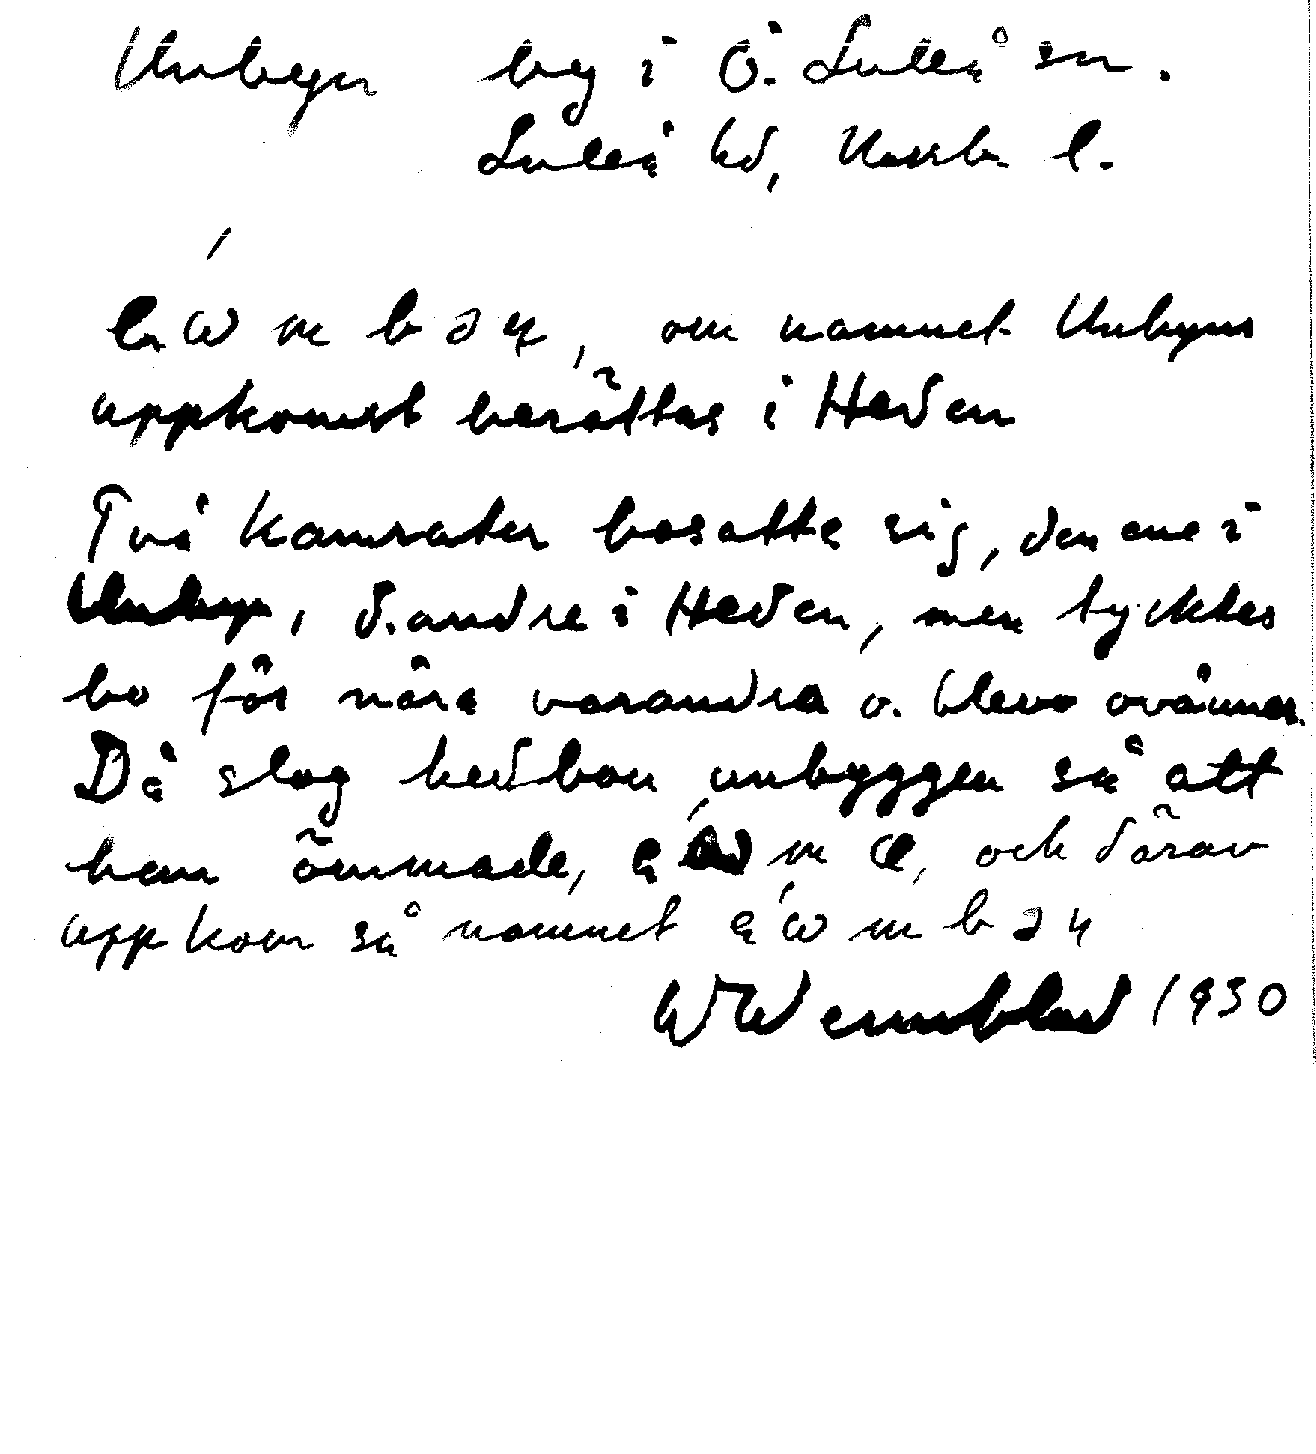 Unbyn by i Ö. Luleå sn.
Luleå hd, Norrb. l.
om namnet Unbyns
uppkomst berättas i Heden
Två kamrater bosatte sig, den ene i
Unbyn, d. andre i Heden, men tycktes
bo för nära varandra o. blevo ovänner.
Då slog hedbon unbyggen så att
han ömmade, och därav
uppkom så namnet
W Wennblad 1930